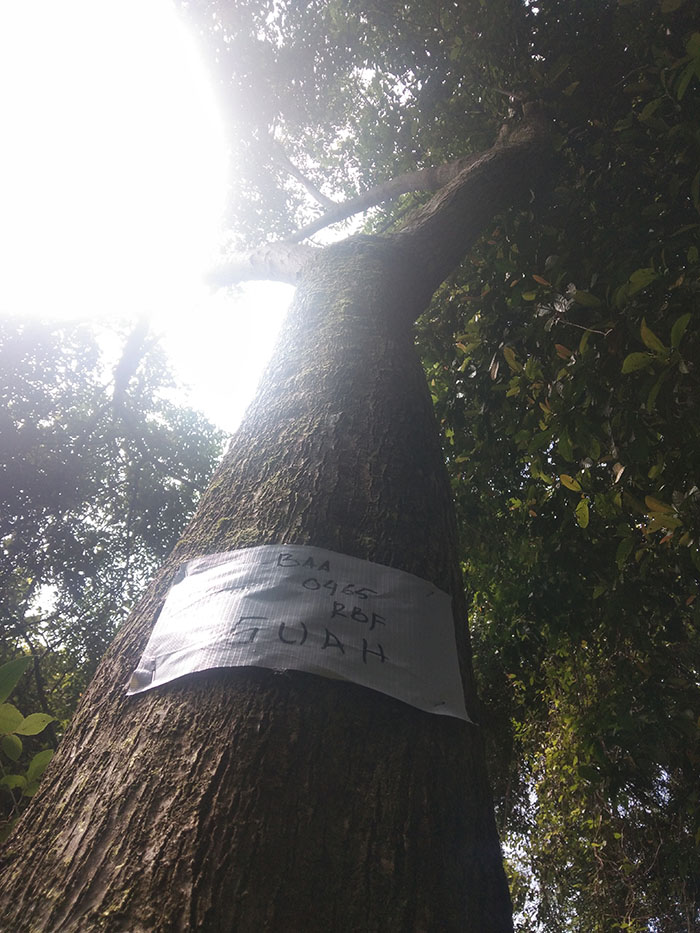 BAA
0465
RBF
GUAH